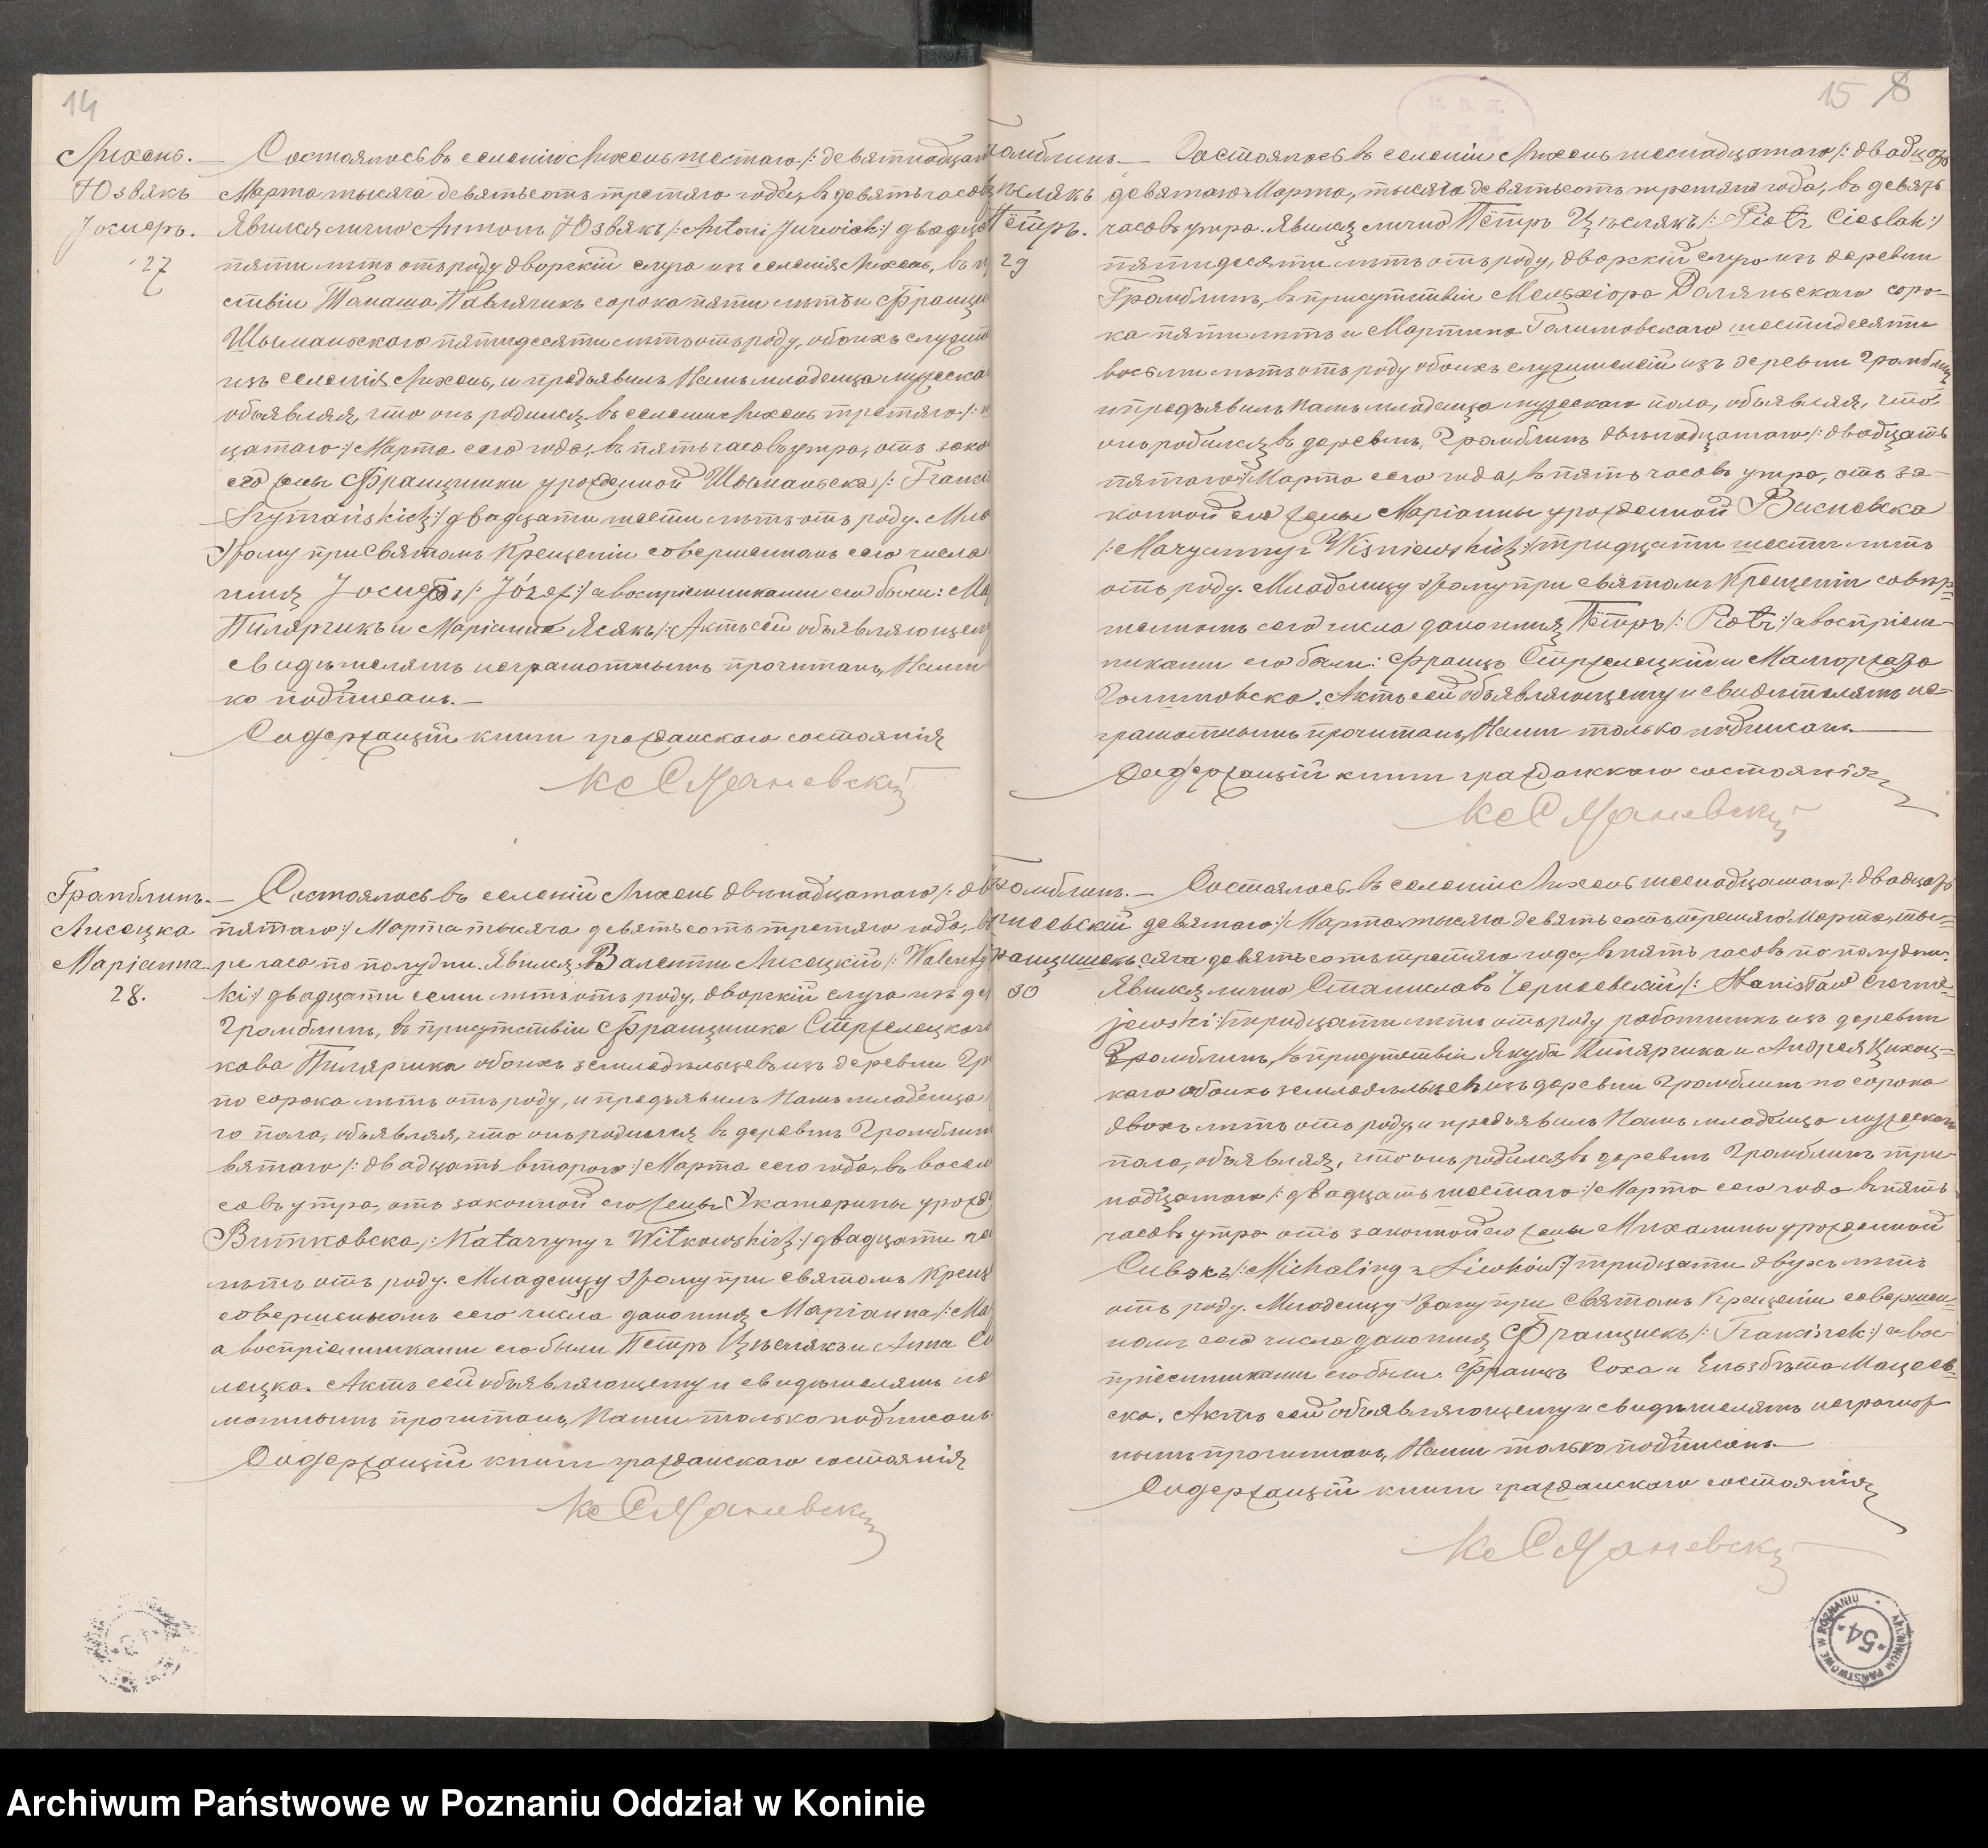 14
Лихень.
Юзвякъ
Госифъ.
27
Состоялось въ селеніи Лихень шестаго /: девятнадцат
Марта тысяча девятьсотъ третяго года, въ девять часовъ
Явился лично Антонъ Юзвякъ /: Antoni Juzwiak :/ двадца
пяти лѣтъ отъ роду дворскій слуга изъ селенія Лихень, въ п
ствіи Томаша Павлячикъ сорока пяти лѣтъ и Франци
Шыманьскаго пятидесяти лѣтъ отъ роду, обоихъ служит
изъ селенія Лихень, и предъявилъ Намъ младенца мужеска
объявляя, что онъ родился въ селеніи Лихень третяго /:
цатаго :/ Марта сего года, въ пять часовъ утра, отъ зако
его жены Францишки урожденной Шыманьска /: Franci
Szymańskich :/ двадцати шести лѣтъ отъ роду. Мла
этому при Святомъ Крещеніи совершенномъ сего числа
имя Іосифъ /: Józef :/ а воспріемниками его были: Ма
Пилярчикъ и Маріанна Ясякъ /: Актъ сей объявляющему
свидѣтелямъ неграмотнымъ прочитанъ, Нами
ко подписанъ.
Содержащій книги гражданскаго состоянія
Кс С Мрачевскій
Грамблинъ.
Лисецка
Маріанна.
28.
Состоялось въ селеніи Лихень двѣнадцатаго /: дв
пятаго :/ Марта тысяча девятьсотъ третяго года, въ
ре часа по полудни. Явился Валенты Лисецкій /: Walenty
ki :/ двадцати семи лѣтъ отъ роду, дворскій слуга изъ де
Грамблинъ, въ присутствіи Францишка Стржелецкаго
кова Пилярчика обоихъ земледѣльцевъ изъ деревни Гр
по сорока лѣтъ отъ роду, и предъявилъ Намъ младенца
го пола, объявляя, что онъ родился въ деревнѣ Грамблинъ
вятаго /: двадцать втораго :/ Марта сего года, въ восем
совъ утра, отъ законной его жены Екатерины урожд
Витковска /: Katarzyny z Witkowskich :/ двадцати че
лѣтъ отъ роду. Младенцу этому при святомъ Крещ
совершенномъ сего числа дано имя Маріанна /: Ma
а воспріемниками его были Петръ Цѣслякъ и Анна Ст
лецка. Актъ сей объявляющему и свидѣтелямъ не
мотнымъ прочитанъ, Нами только подписанъ.
Содержащій книги гражданскаго состоянія
Кс С Мрачевскій
15 8
рамблинъ
ѣслякъ
Пётръ.
29
Состоялось въ селеніи Лихень шеснадцатаго /: двадцать
девятаго Марта, тысяча девятьсотъ третяго года, въ девять
часовъ утра. Явился лично Пётръ Цѣслякъ /: Piotr Cieslak :/
пятидесяти лѣтъ отъ роду, дворскій слуга изъ деревни
Грамблинъ, въ присутствіи Мельхіора Доляньскаго соро-
ка пяти лѣтъ и Мартина Голимовскаго шестидесяти
восьми лѣтъ отъ роду обоихъ служителей изъ деревни Грамблинъ
и предъявилъ Намъ младенца мужескаго пола, объявляя, что
онъ родился въ деревнѣ, Грамблинъ двѣнадцатаго /: двадцать
пятаго :/ Марта сего года, въ пять часовъ утра, отъ за-
конной его жены Маріанны урожденной Висневска
/: Maryanny z Wiśniewskich :/ тридцати шести лѣтъ
отъ роду. Младенцу этому при святомъ Крещеніи совер=
шенномъ сего числа дано имя Пётръ /: Piotr :/ а воспріем-
никами его были: Францъ Стржелецкій и Малгоржата
Голимовска. Актъ сей объявляющему и свидѣтелямъ не-
грамотнымъ прочитанъ, Нами только подписанъ.
Содержащій книги гражданскаго состоянія
Кс С Мрачевскій
рамблинъ.
рнеевскій
ранцишекъ
30
Состоялось въ селеніи Лихень шеснадцатаго /: двадцать
девятаго :/ Марта тысяча девятьсотъ третяго Марта, ты=
сяча девятьсотъ третяго года, въ пять часовъ по полудни.
Явился лично Станиславъ Чернеевскій /: Stanisław Czernie=
jewski :/ тридцати лѣтъ отъ роду работникъ изъ деревни
Грамблинъ, въ присутствіи Якуба Пилярчика и Андрея Цихоц=
каго обоихъ земледѣльцевъ изъ деревни Грамблинъ по сорока
двохъ лѣтъ отъ роду, и предъявилъ Намъ младенца мужескаго
пола, объявляя, что онъ родился въ деревнѣ Грамблинъ три-
надцатаго /: двадцать шестаго :/ Марта сего года въ пять
часовъ утра отъ законной его жены Михалины урожденной
Сивэкъ /: Michaliny z Siwków :/ тридцати двухъ лѣтъ
отъ роду. Младенцу этому при Святомъ Крещеніи совершен=
номъ сего числа дано имя Францискъ /: Franciszek :/ а вос-
пріемниками его были. Францъ Соха и Ельзбѣта Мацеев=
ска. Актъ сей объявляющему и свидѣтелямъ неграмот
нымъ прочитанъ, Нами только подписанъ.
Содержащій книги гражданскаго состоянія
Кс С Мрачевскій
ARCHIWUM PAŃSTWOWE W POZNANIU
* 54 *
Archiwum Państwowe w Poznaniu Oddział w Koninie